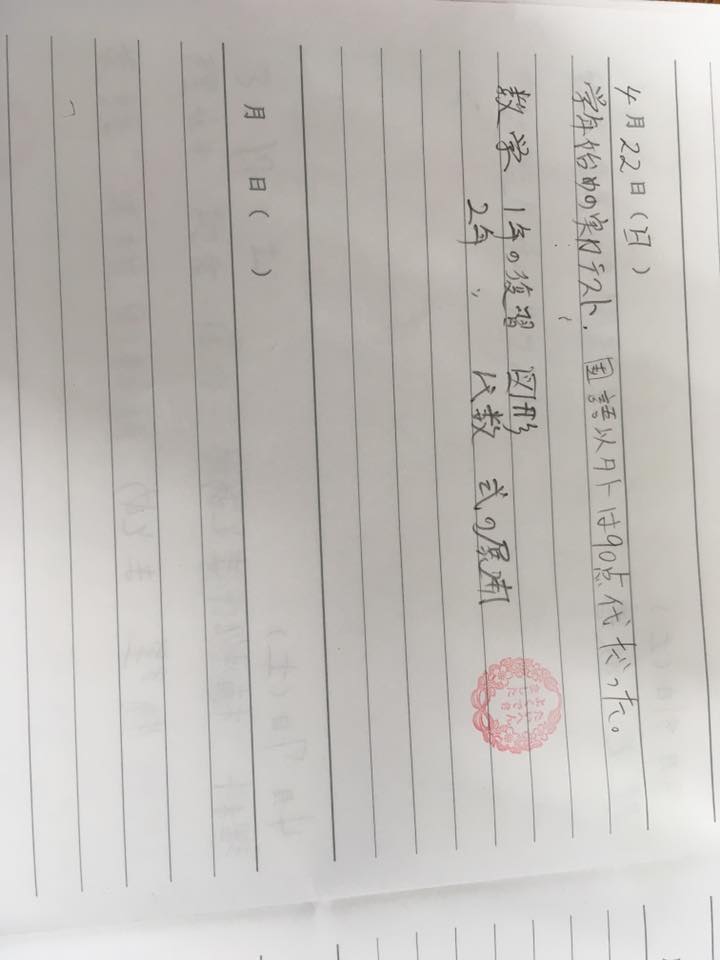 4月22日(日)
学年始めの実力テスト、国語以外は90点代だった。
数学 1年の復習 図形
2年 〃 代数 式の展開
たいへん
よくでき
ました
月 日( )